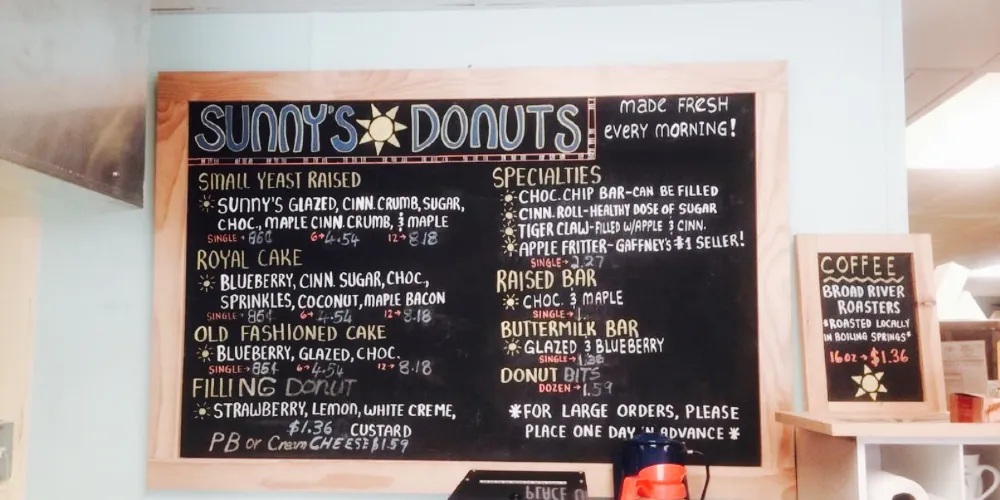 SUNNY'S DONUTS
MADE FRESH
EVERY MORNING!
SMALL YEAST RAISED
SUNNY'S GLAZED, CINN.CRUMB, SUGAR,
CHOC., MAPLE CINN.CRUMB, & MAPLE
SINGLE→86¢ 6→4.54 12→8.18
ROYAL CAKE
BLUEBERRY, CINN. SUGAR, CHOC.,
SPRINKLES, COCONUT, MAPLE BACON
SINGLE→86¢ 6→4.54 12→8.18
OLD FASHIONED CAKE
BLUEBERRY, GLAZED, CHOC.
SINGLE→86¢ 6→4.54 12→8.18
FILLING DONUT
STRAWBERRY, LEMON, WHITE CREME,
$1.36 CUSTARD
PB or Cream CHEESE $1.59
SPECIALTIES
CHOC. CHIP BAR-CAN BE FILLED
CINN. ROLL-HEALTHY DOSE OF SUGAR
TIGER CLAW-FILLED W/APPLE & CINN.
APPLE FRITTER-GAFFNEY'S #1 SELLER!
SINGLE→2.27
RAISED BAR
CHOC. & MAPLE
SINGLE→1.
BUTTERMILK BAR
GLAZED & BLUEBERRY
SINGLE→1.36
DONUT BITS
DOZEN→1.59
*FOR LARGE ORDERS, PLEASE
PLACE ONE DAY IN ADVANCE*
COFFEE
BROAD RIVER
ROASTERS
*ROASTED LOCALLY
IN BOILING SPRINGS*
16oz→$1.36
PLACE O